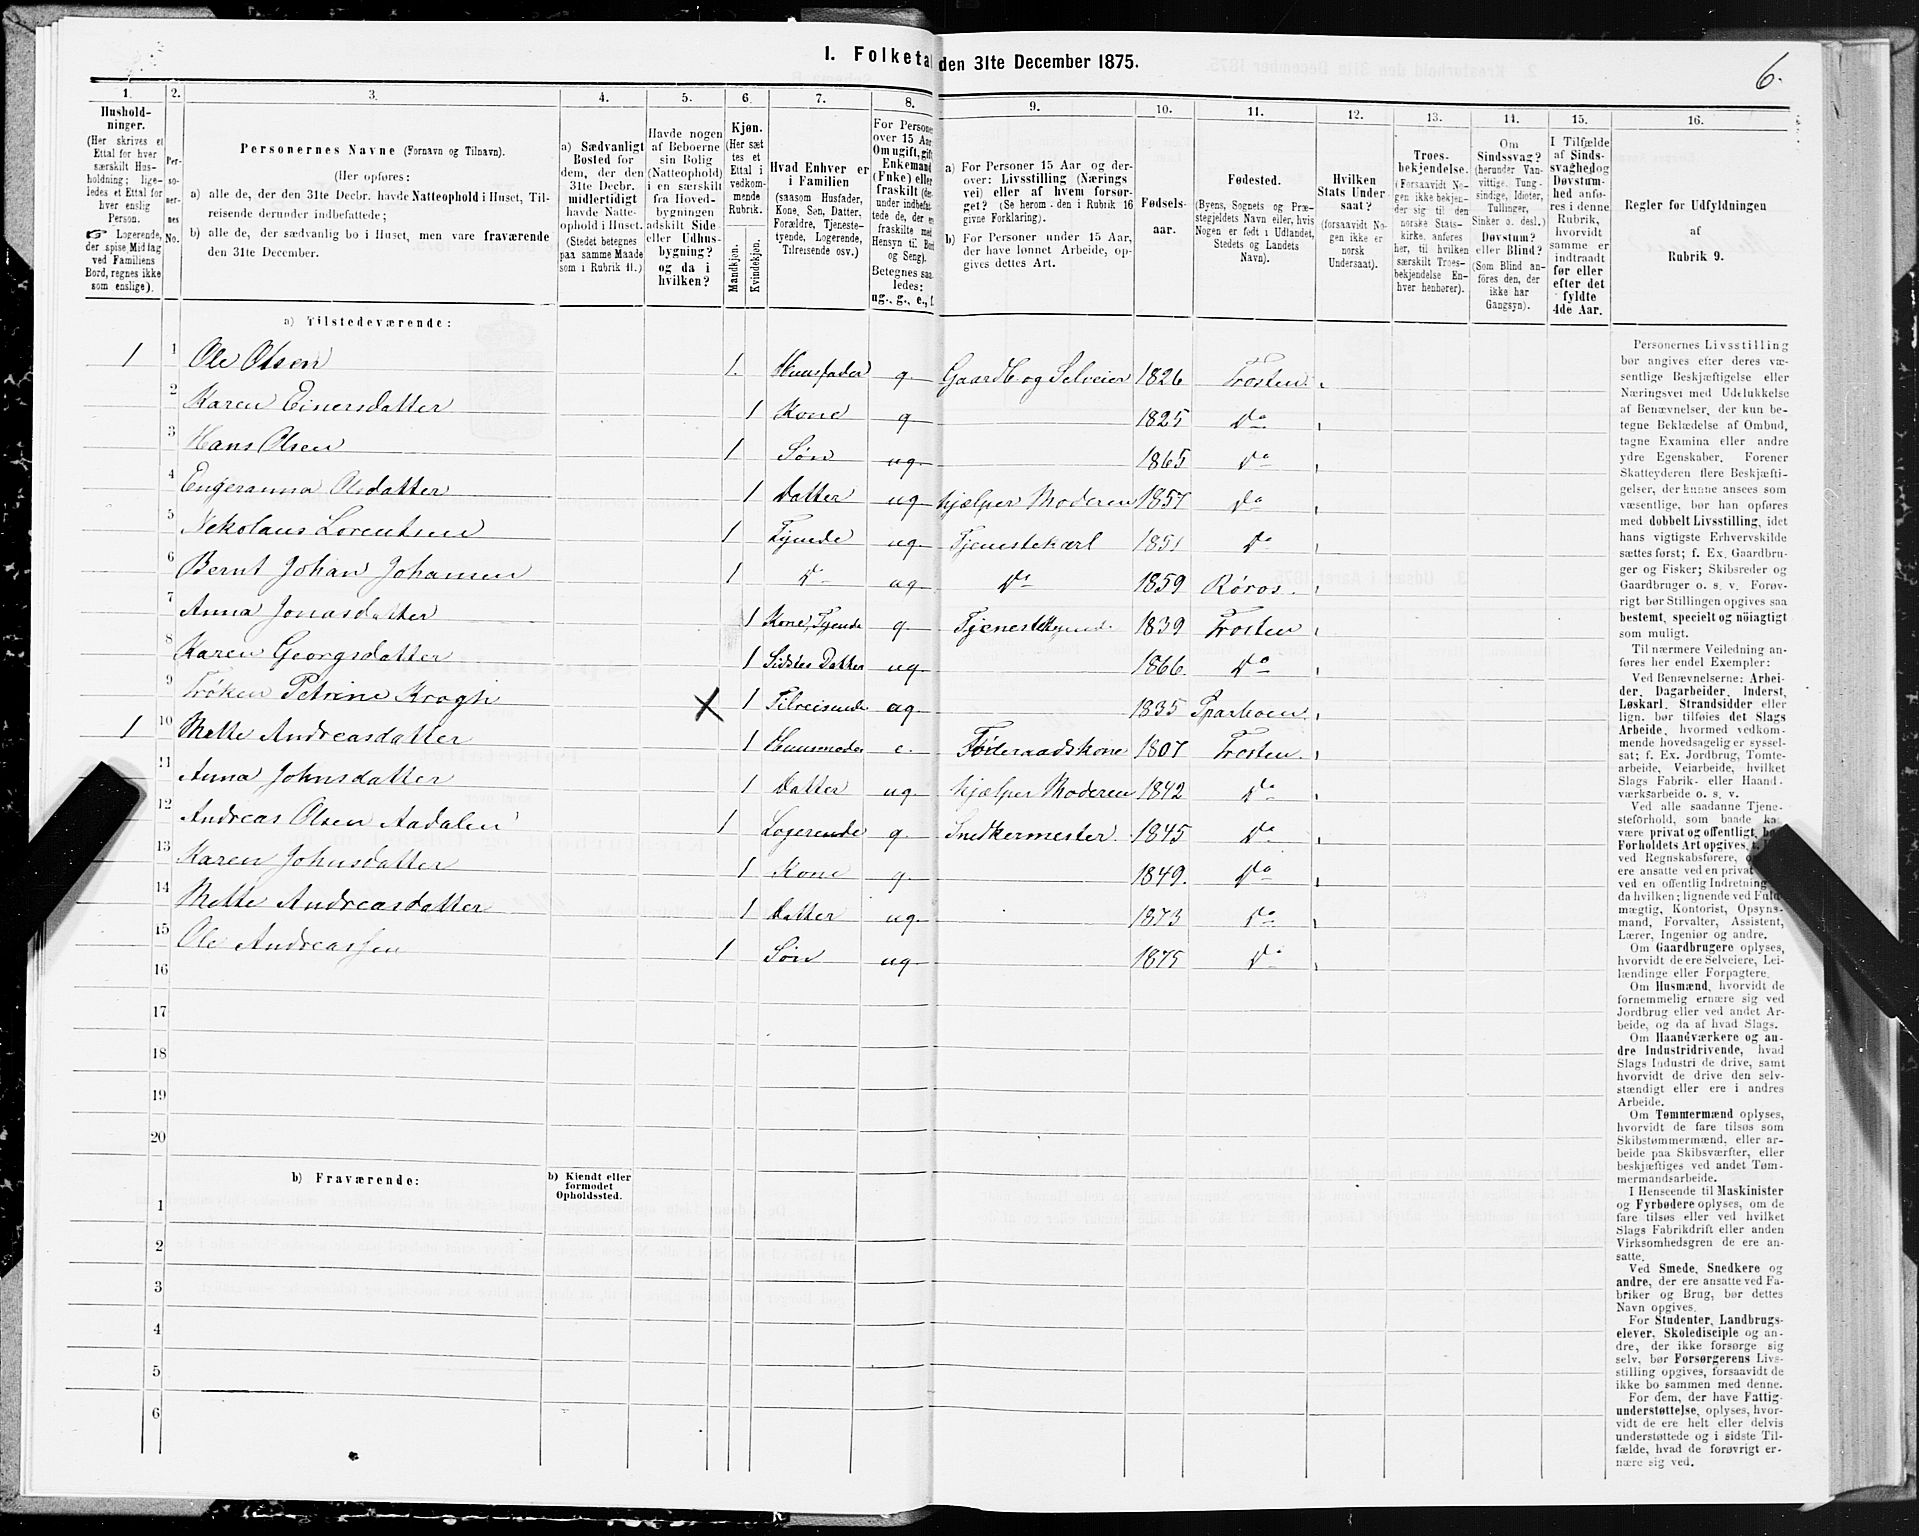 I. Folketal den 31te December 1875.
6.
1. 2. 3. 4. 5. 6. 7. 8. 9. 10. 11. 12. 13. 14. 15. 16.
Husholdninger.
(Her skrives et
Ettal for hver
særskilt Husholdning; ligeledes et Ettal for
hver enslig
Person.
☞ Logerende,
der spise Middag
ved Familiens
Bord, regnes ikke
som enslige).
Personernes No.
Personernes Navne (Fornavn og Tilnavn).
(Her opføres:
a) alle de, der den 31te Decbr. havde Natteophold i Huset, Tilreisende derunder indbefattede;
b) alle de, der sædvanlig bo i Huset, men vare fraværende
den 31te December.
a) Sædvanligt
Bosted for
dem, der den
31te Decbr.
midlertidigt
havde Natteophold i Huset.
(Stedet betegnes
paa samme Maade
som i Rubrik 11.)
Havde nogen
af Beboerne
sin Bolig
(Natteophold)
i en særskilt
fra Hovedbygningen
adskilt Side-
eller Udhusbygning?
og da i
hvilken?
Kjøn.
(Her sættes et
Ettal i
vedkommende
Rubrik.
Mandkjøn.
Kvindekjøn.
Hvad Enhver er
i Familien
(saasom Husfader,
Kone, Søn, Datter,
Forældre, Tjenestetyende, Logerende,
Tilreisende osv.)
For Personer
over 15 Aar:
Om ugift, gift,
Enkemand
(Enke) eller
fraskilt
Betegnes saaledes:
ug., g., e., f.
a) For Personer 15 Aar og derover: Livsstilling (Næringsvei) eller af hvem forsørget? (Se herom den i Rubrik 16
givne Forklaring).
b) For Personer under 15 Aar,
der have lønnet Arbeide, opgives dettes Art.
Fødselsaar.
Fødested.
(Byens, Sognets og Præstegjeldets Navn eller, hvis
Nogen er født i Udlandet,
Stedets og Landets
Navn).
Hvilken
Stats Undersaat?
(forsaavidt Nogen ikke er
norsk
Undersaat).
Troesbekjendelse.
(Forsaavidt Nogen ikke bekjender sig til den
norske Statskirke, anføres
her, til hvilken
særskilt Troesbekjendelse Enhver henhører).
Om
Sindssvag?
(herunder Vanvittige, Tungsindige, Idioter,
Tullinger,
Sinker o. desl.)
Døvstum?
eller Blind?
(Som Blind anføres den, der
ikke har
Gangsyn).
I Tilfælde
af Sindssvaghed og
Døvstumhed anføres i denne
Rubrik,
hvorvidt
samme er
indtraadt
før eller
efter det
fyldte
4de Aar.
Regler for Udfyldningen
af
Rubrik 9.
a) Tilstedeværende:
1 1 Ole Olsen 1. Huusfader g. Gaardb og Selveier 1826 Frosten.
2 Karen Einersdatter 1 Kone g 1825 Do
3 Hans Olsen 1 Søn ug. 1865 Do
4 Engeranna Olsdatter 1 Datter ug hjælper Moderen 1857 Do
5 Nekolaus Lorentsen 1 Tyende ug. Tjenstekarl 1851 Do
6 Bernt Johan Johansen 1 Do ug Do 1859 Røros.
7 Anna Jonasdatter 1 Kone, Tyende g 1839 Frosten
8 Karen Georgsdatter 1 Sidstes Datter ug 1866 Do
9 Frøken Petrine Krogh X 1 Tilreisende ug. 1835
1 10 Mette Andreasdatter 1 Huusmoder e. Føderaadskone 1807 Frosten.
11 Anna Johnsdatter 1 Datter ug. hjælper Moderen 1842 Do
12 Andreas Olsen Aadalen 1 Logerende g. Snedkermester. 1845 Do
13 Karen Johnsdatter 1 Kone g. 1849. Do
14 Mette Andreasdatter 1 Datter ug. 1873 Do
15 Ole Andreassen 1 Søn ug 1875 Do
16
17
18
19
20
b) Fraværende: b) Kiendt eller
formodet
Opholdssted.
1
2
3
4
5
6
Personernes Livsstilling
bør angives efter deres væsentlige Beskjæftigelse eller
Næringsvei med Udelukkelse
af Benævnelser, der kun betegne Beklædelse af Ombud,
tagne Examina eller andre
ydre Egenskaber. Forener
Skatteyderen flere Beskjæftigelser, der kunne ansees som
væsentlige, bør han opføres
med dobbelt Livsstilling, idet
hans vigtigste Erhvervskilde
sættes først; f. Ex. Gaardbruger og Fisker; Skibsreder og
Gaardbruger o. s. v. Forøvrigt bør Stillingen opgives saa
bestemt, specielt og nöiagtigt
som muligt.
Til nærmere Veiledning anføres her endel Exempler:
Ved Benævnelserne: Arbeider, Dagarbeider, Inderst,
Løskarl, Strandsidder eller
lign. bør tilføies det Slags
Arbeide, hvormed vedkommende hovedsagelig er sysselsat; f. Ex. Jordbrug, Tomtearbeide, Veiarbeide, hvilket
Slags Fabrik- eller Haandværksarbeide o. s. v.
Ved alle saadanne Tjenesteforhold, som baade kan
være privat og offentligt, bør
Forholdets Art opgives,
ved Regnskabsførere,
ere ansatte ved en privat
ved en offentlig Indretning
da hvilken; lignende ved Fuldmægtig, Kontorist, Opsynsmand, Forvalter, Assistent,
Lærer, Ingeniør og andre.
Om Gaardbrugere oplyses,
hvorvidt de ere Selveiere, Leilændinge eller Forpagtere.
Om Husmænd, hvorvidt de
fornemmelig ernære sig ved
Jordbrug eller ved andet Arbeide, og da af hvad Slags.
Om Haandværkere og andre Industridrivende, hvad
Slags Industri de drive, samt
hvorvidt de drive den selvstændigt eller ere i andres
Arbeide.
Om Tømmermænd oplyses,
hvorvidt de fare tilsøs som
Skibstømmermænd, eller arbeide paa Skibsværfter, eller
beskjæftiges ved andet Tømmermandsarbeide.
I Henseende til Maskinister
og Fyrbødere oplyses, om de
fare tilsøs eller ved hvilket
Slags Fabrikdrift eller anden
Virksomhedsgren de ere ansatte.
Ved Smede, Snedkere og
andre, der ere ansatte ved Fabriker og Brug, bør dettes
Navn opgives.
For Studenter, Landbrugselever, Skoledisciple og andre, der ikke forsørge sig
selv, bør Forsørgerens Livsstilling opgives, forsaavidt de
ikke bo sammen med denne.
For dem, der have Fattigunderstøttelse, oplyses, hvorvidt de ere helt eller delvis
understøttede og i sidste Tilfælde, hvad de forøvrigt ernære sig ved.